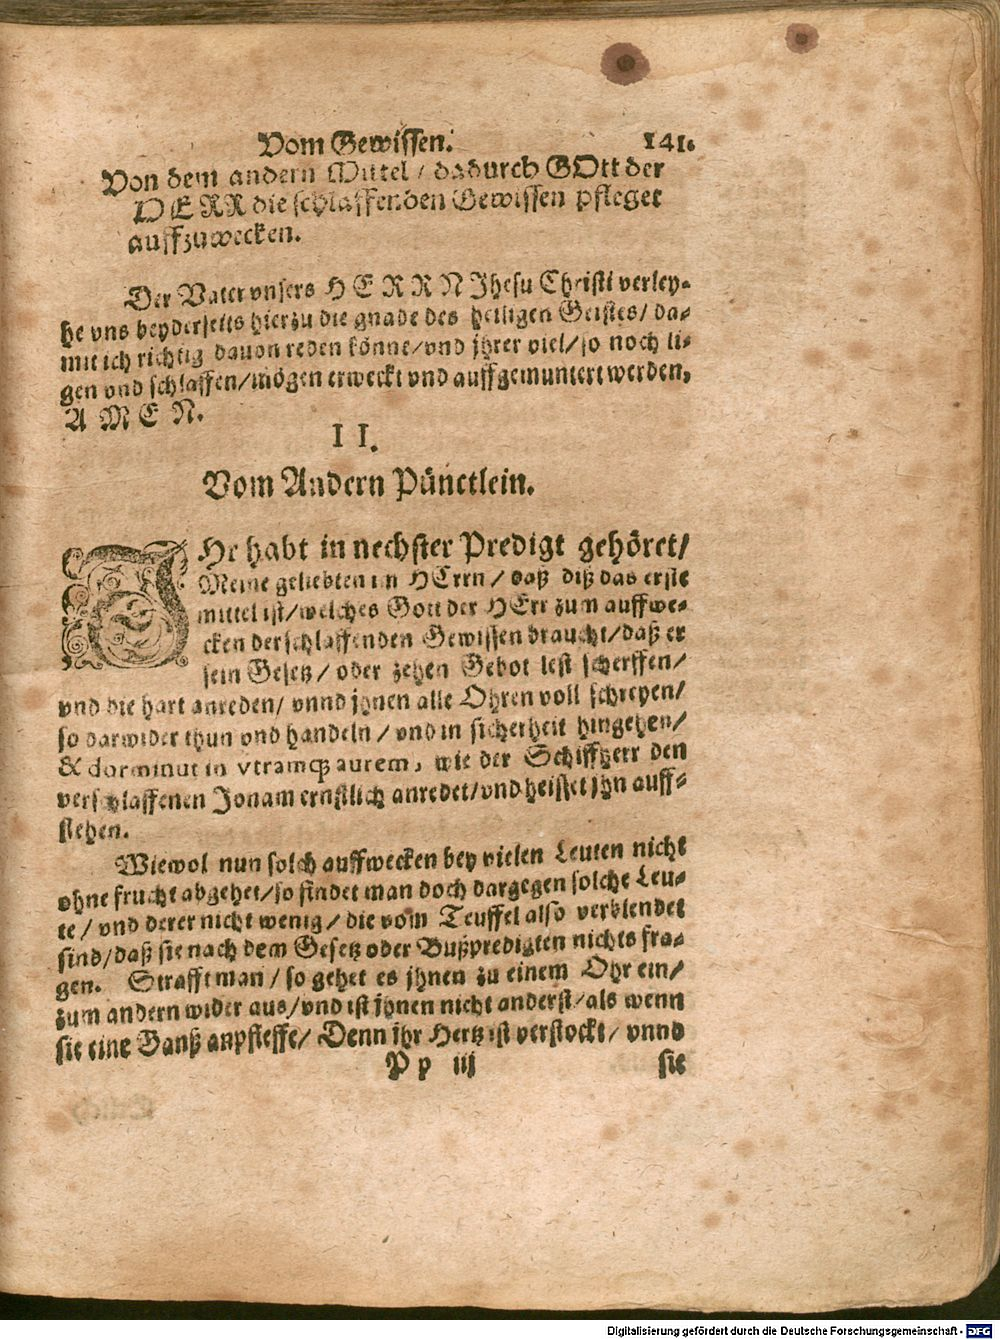 Vom Gewissen. 141.
Von dem andern Mittel / dadurch GOtt der
HERR die schlaffenden Gewissen pfleget
auffzuwecken.
Der Vater vnsers HERRN Jhesu Christi verley-
he vns beyderseits hierzu die gnade des heiligen Geistes / da-
mit ich richtig dauon reden könne / vnd jhrer viel / so noch li-
gen vnd schlaffen / mögen erweckt vnd auffgemuntert werden,
AMEN.
II.
Vom Andern Pünctlein.
JHr habt in nechster Predigt gehöret /
Meine geliebten im HErrn / daß diß das erste
mittel ist / welches Gott der HErr zum auffwe-
cken der schlaffenden Gewissen braucht / daß er
sein Gesetz / oder zehen Gebot lest scherffen /
vnd die hart anreden / vnnd jhnen alle Ohren voll schreyen /
so darwider thun vnd handeln / vnd in sicherheit hingehen /
& dorminut in vtramq; aurem, wie der Schiffherr den
verschlaffenen Jonam ernstlich anredet / vnd heistet jhn auff-
stehen.
Wiewol nun solch auffwecken bey vielen Leuten nicht
ohne frucht abgehet / so findet man doch dargegen solche Leu-
te / vnd derer nicht wenig / die vom Teuffel also verblendet
sind / daß sie nach dem Gesetz oder Bußpredigten nichts fra-
gen. Strafft man / so gehet es jhnen zu einem Ohr ein /
zum andern wider aus / vnd ist jhnen nicht anderst / als wenn
sie eine Ganß anpfeffe / Denn ihr Hertz ist verstockt / vnnd
Pp iij sie
Digitalisierung gefördert durch die Deutsche Forschungsgemeinschaft - DFG